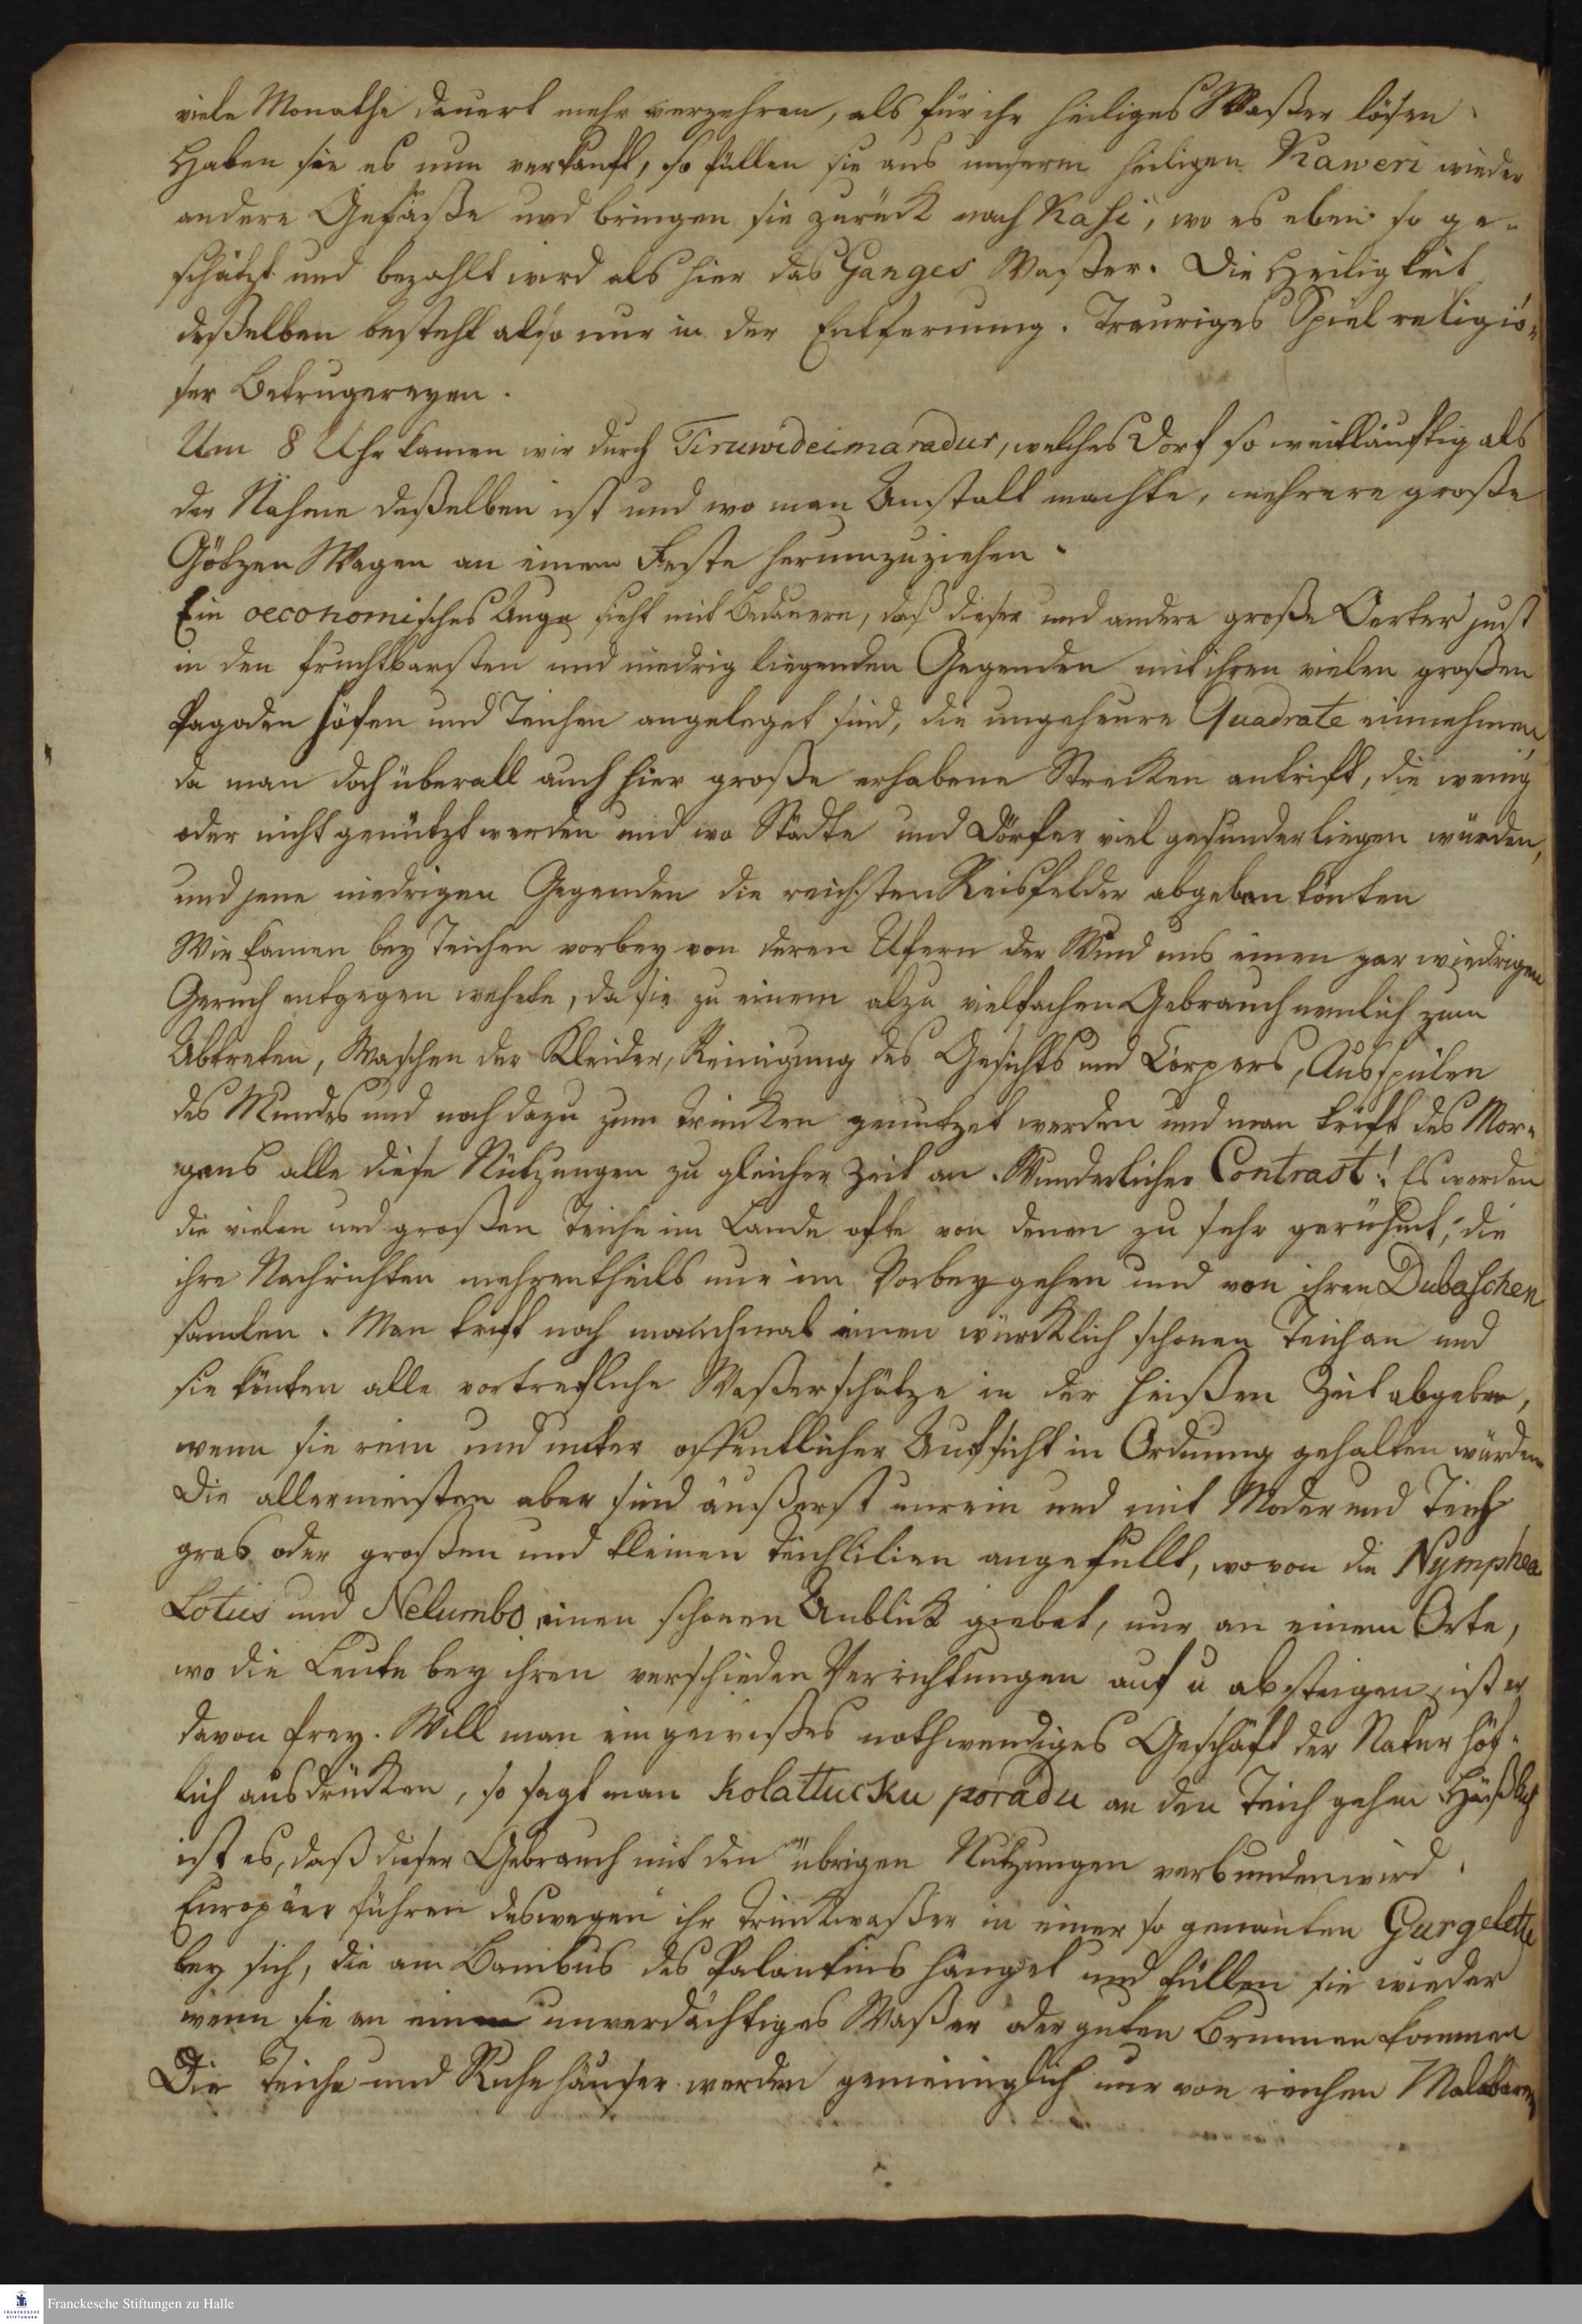 viele Monathe dauert mehr verzehren, als für ihr heiliges Waßer lösen.
Haben sie es nun verkauft, so füllen sie aus unserm heiligen Kaweri wieder
andere Gefäße und bringen sie zurück nach Kasi, wo es eben so ge-
schätzt und bezahlt wird als hier das Ganges Waßer. Die Heiligkeit
deßelben besteht also nur in der Entfernung. Trauriges Spiel religiö-
ser Betrugereyen.
Um 8 Uhr kamen wir durch Tiruwideimaradur, welches Dorf so weitläuftig als
der Nahme deßelben ist und wo man Anstalt machte, mehrere große
Götzen Wagen an einem Feste herumzuziehen.
Ein oeconomisches Auge sieht mit Bedauern, daß dieser und andere große Oerter just
in den fruchtbarsten und niedrig liegenden Gegenden mit ihren vielen großen
Pagoden höfen und Teichen angeleget sind, die ungeheure Quadrate einnehmen,
da man doch überall auch hier große erhabene Strecken antrift, die wenig
oder nicht genützt werden und wo Städte und Dörfer viel gesunder liegen würden,
und jene niedrigen Gegenden die reichsten Reisfelder abgeben könten
Wir kamen bey Teichen vorbey von deren Ufern der Wind uns einen gar wiedrigen
Geruch entgegen wehete, da sie zu einem alzu vielfachen Gebrauch nemlich zum
Abtreten, Waschen der Kleider, Reinigung des Gesichts und Cörpers, Ausspülen
des Mundes und noch dazu zum trincken genutzet werden und man trift des Mor-
gens alle diese Nützungen zu gleicher Zeit an. Wunderlicher Contrast! Es werden
die vielen und großen Teiche im Lande ofte von denen zu sehr gerühmt, die
ihre Nachrichten mehrentheils nur im Vorbeygehen und von ihren Dubaschen
samlen. Man trift noch manchmal einen würcklich schonen Teich an und
sie könten alle vortrefliche Waßerschätze in der heißen Zeit abgeben,
wenn sie rein und unter offentlicher Aufsicht in Ordnung gehalten würden
Die allermeisten aber sind äußerst unrein und mit Moder und Teich
gras oder großen und kleinen Teichlilien angefüllt, wovon die Nymphea
Lotus und Nelumbo einen schonen Anblick giebet, nur an einem Orte,
wo die Leute bey ihren verschieden Verrichtungen auf u absteigen, ist er
davon frey. Will man ein gewißes nothwendiges Geschäft der Natur höf-
lich ausdrücken, so sagt man kolattucku poradu an den Teich gehen Häßlich
ist es, daß dieser Gebrauch mit den übrigen Nutzungen verbunden wird.
Europäer führen deswegen ihr Trinckwaßer in einer so genanten Gurgelette
bey sich, die am Bambus des Palankins hänget und füllen sie wieder
wenn sie an ein unverdächtiges Waßer oder guten Brunnen kommen
Die Teiche und Ruhehäuser werden gemeiniglich nur von reichen Malabaren
Franckesche Stiftungen zu Halle